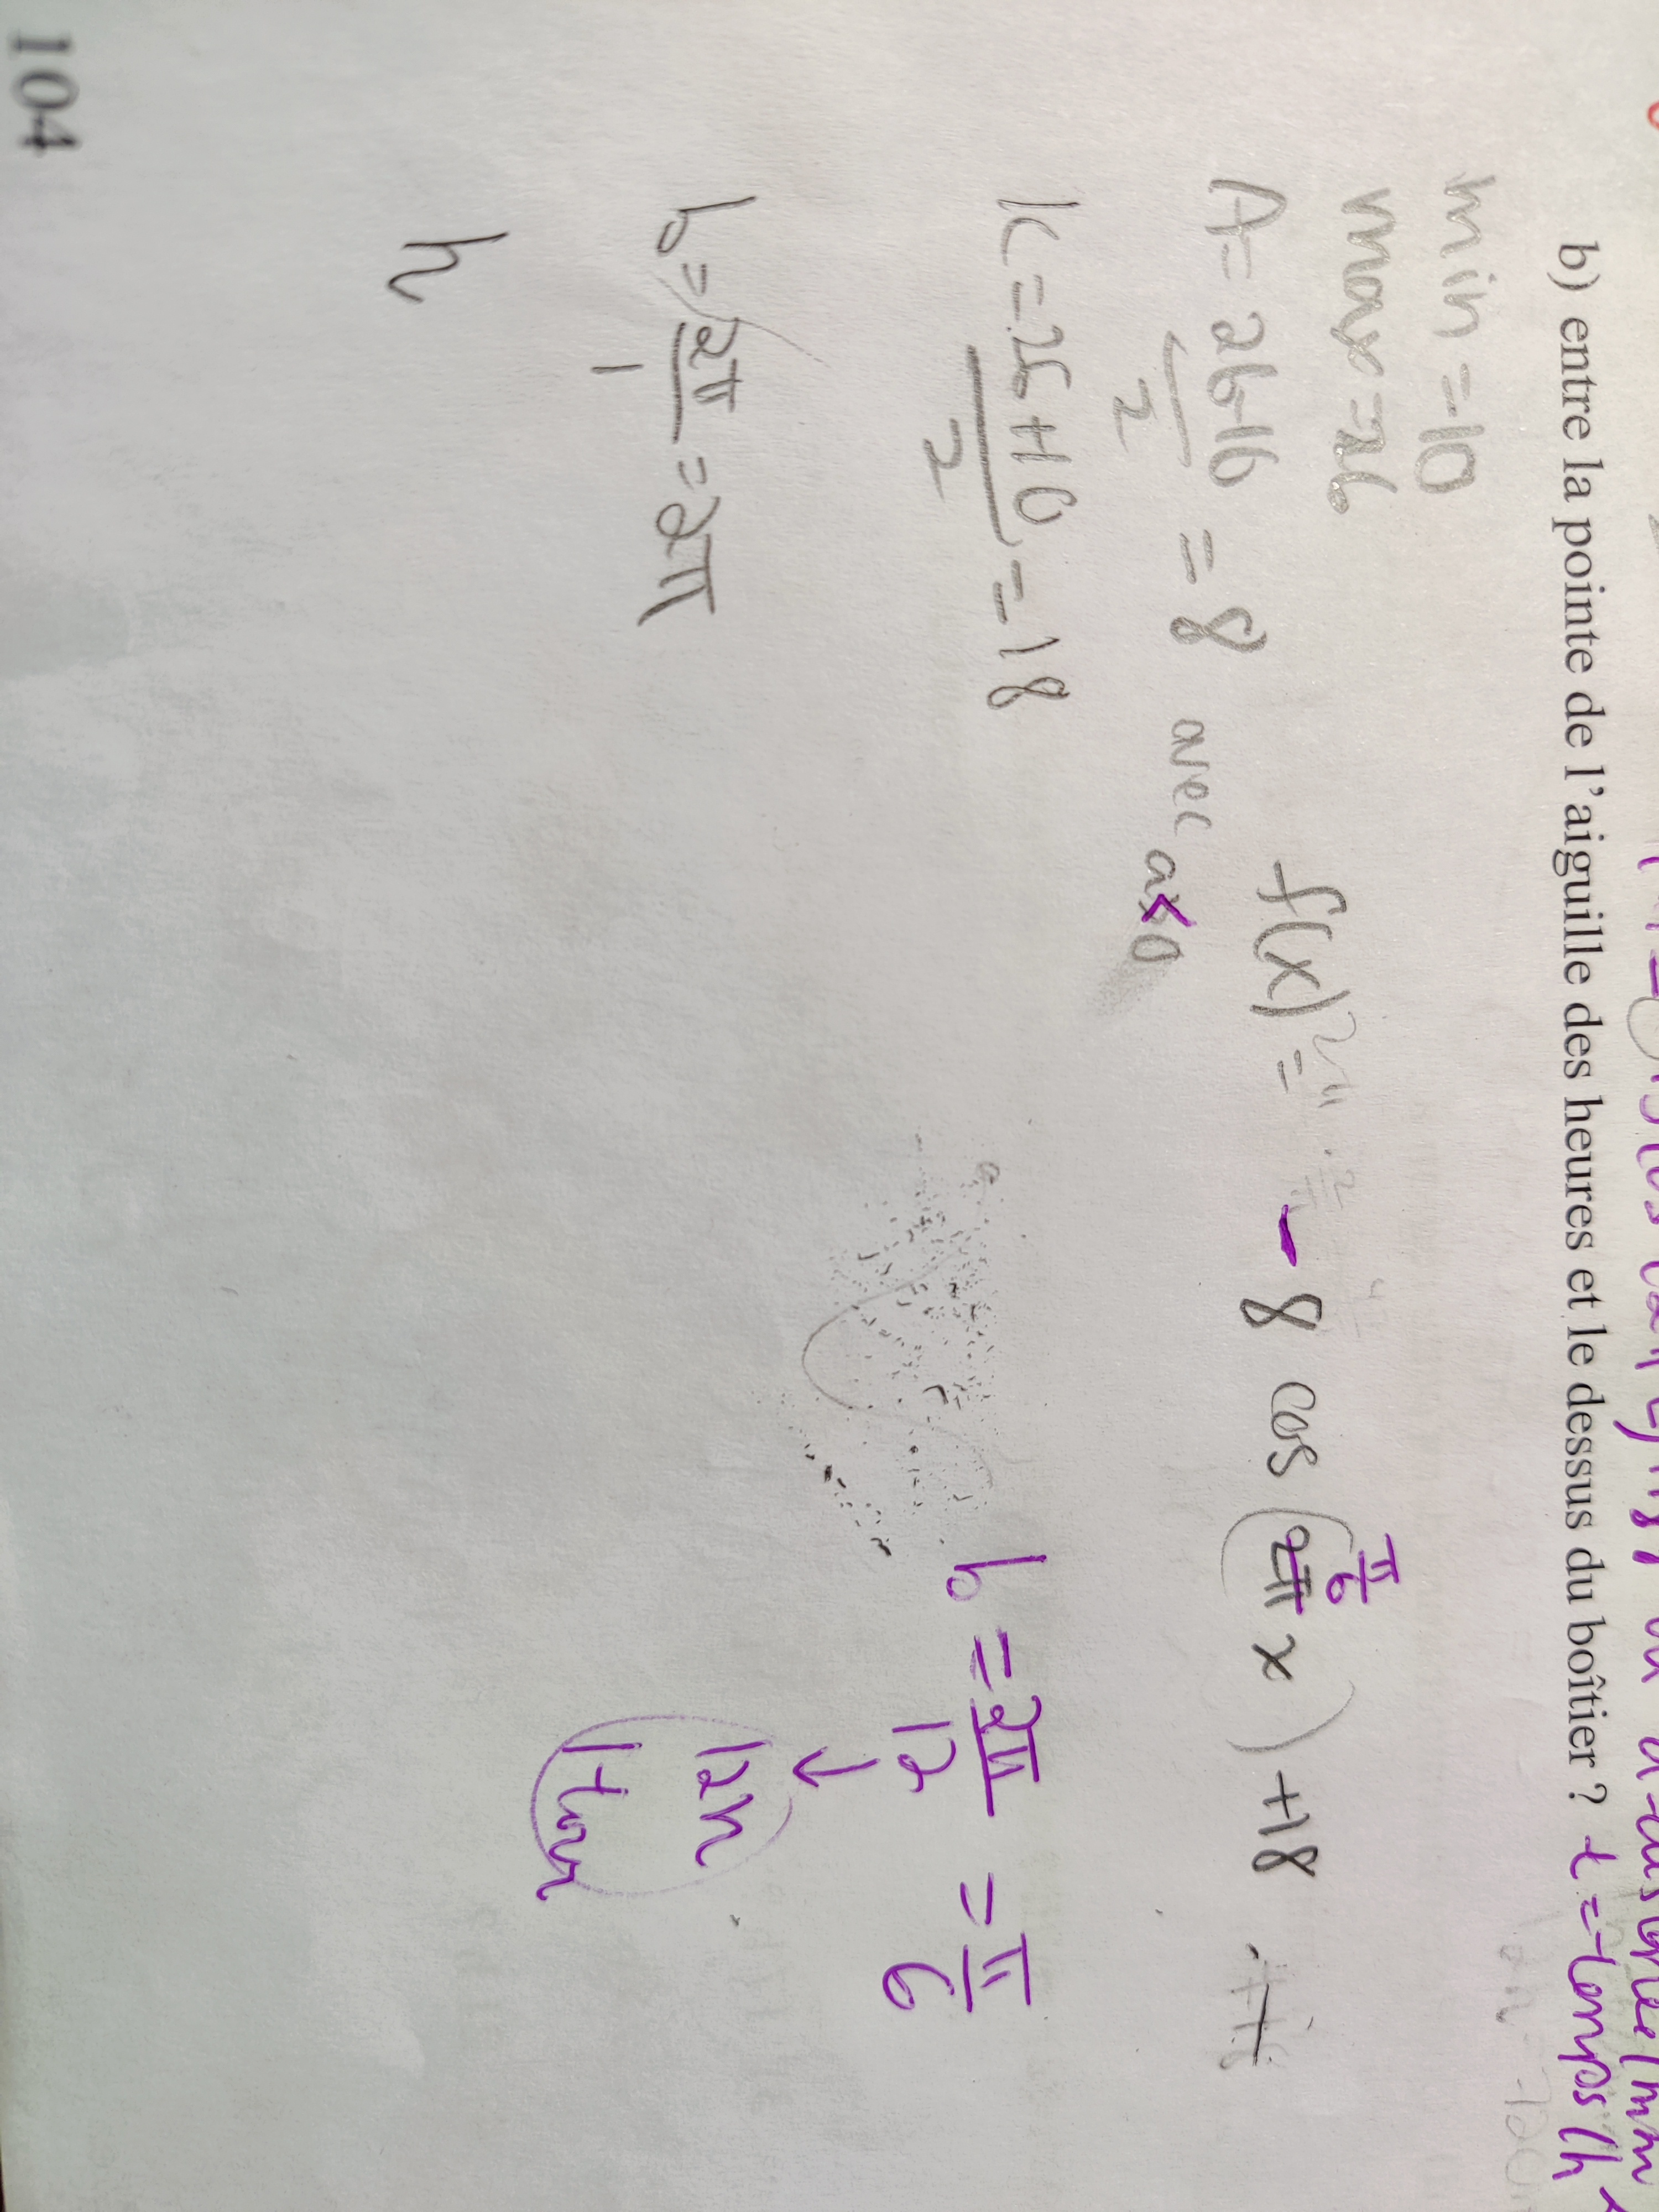 b) entre la pointe de l'aiguille des heures et le dessus du boîtier ? t = temps (h
min = 10
max = 26
f(x) = - 8 cos ( 2π x ) + 18
π/6
A = 26-10 / 2 = 8 avec a < 0
k = 26 + 10 / 2 = 18
b = 2π / 12 = π / 6
↓
12h
1 tour
b = 2π / 1 = 2π
h
104